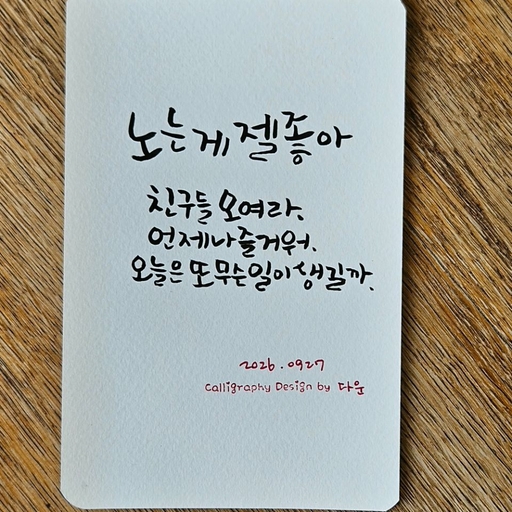 노는게 젤 좋아
친구들 모여라.
언제나 즐거워.
오늘은 또 무슨일이 생길까.
2026.0927
Calligraphy Design by 다운